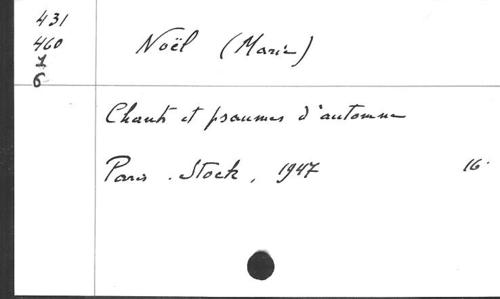 431
460
1
6
Noël (Marie)
Chants et psaumes d'automne
Paris . Stock, 1947 16°